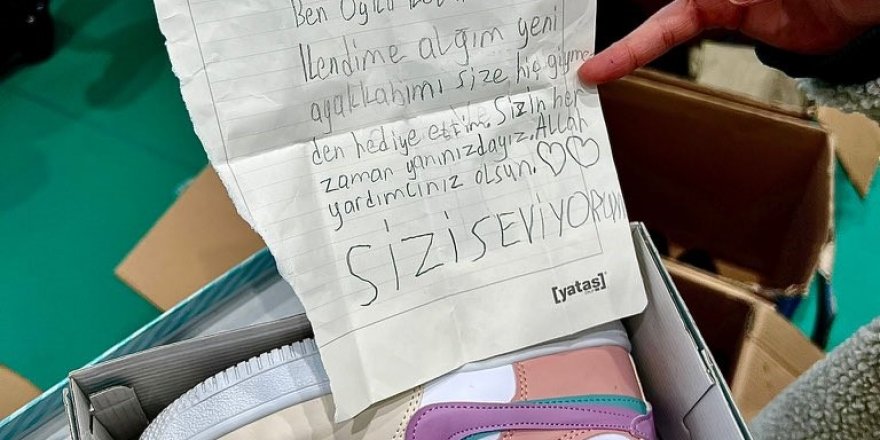 Ben
Kendime aldığım yeni
ayakkabımı size hiç giyme
den hediye ettim. Sizin her
zaman yanınızdayız. Allah
yardımcınız olsun.
SİZİ SEVİYORUM
[yataş]